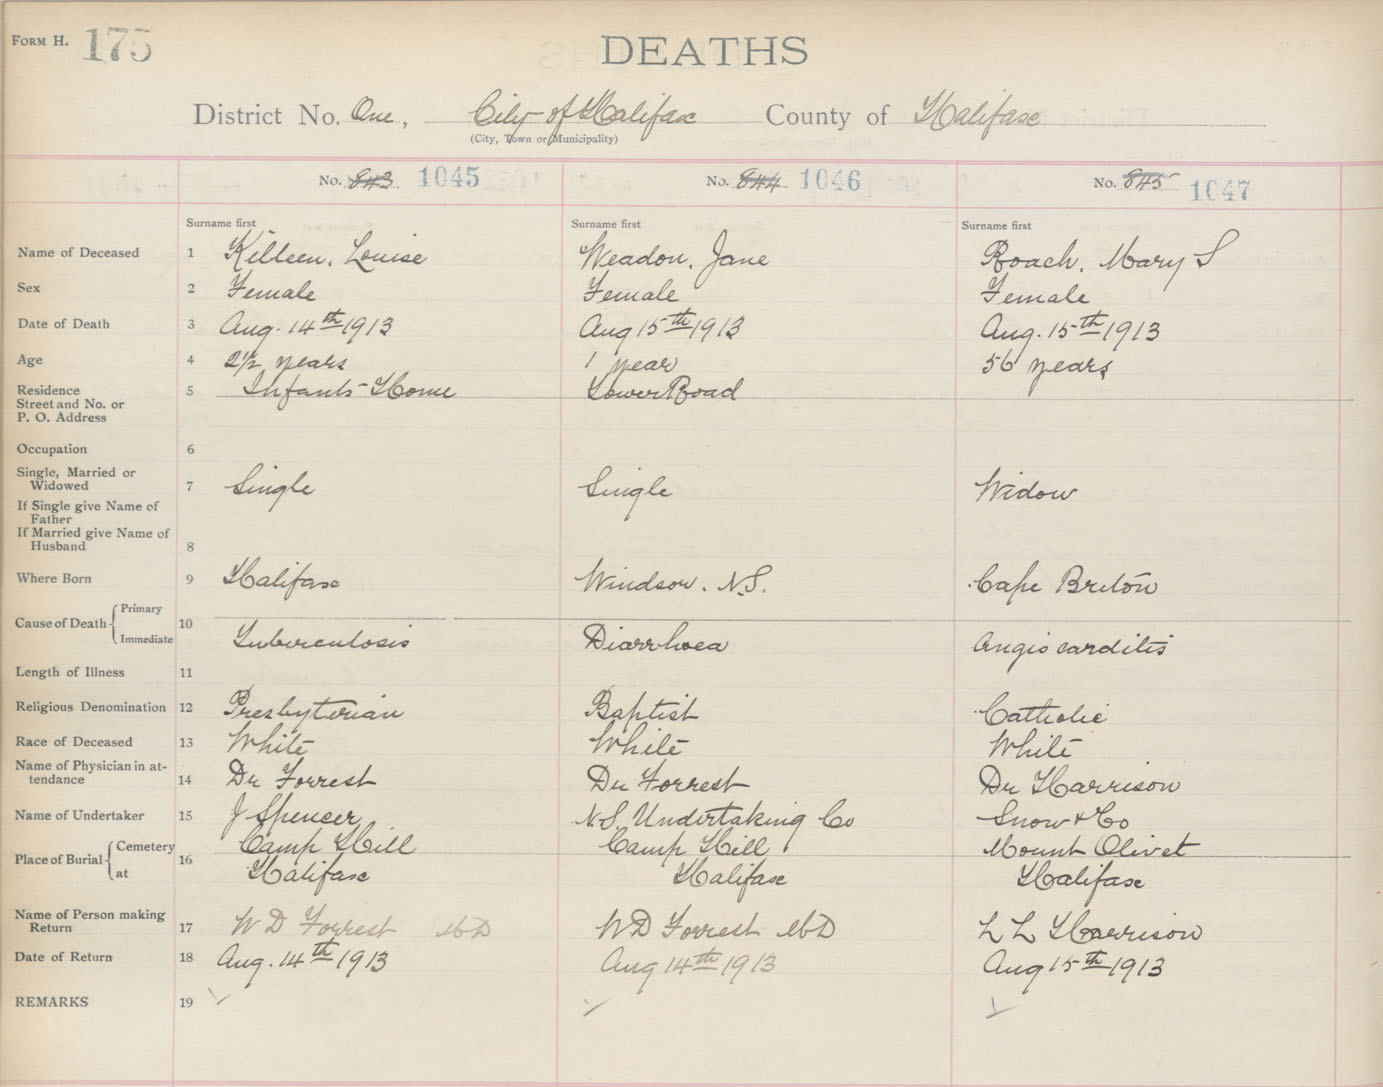 FORM H. 175
DEATHS
District No. One, City of Halifax County of Halifax
(City, Town or Municipality)
No. 843 1045 No. 844 1046 No. 845 1047
Surname first Surname first Surname first
Name of Deceased 1 Killeen, Louise Weadon, Jane Roach, Mary S
Sex 2 Female Female Female
Date of Death 3 Aug. 14th 1913 Aug 15th 1913 Aug. 15th 1913
Age 4 2 1/2 years 1 year 56 years
Residence 5 Infants Home Lower Road
Street and No. or
P. O. Address
Occupation 6
Single, Married or
Widowed 7 Single Single Widow
If Single give Name of
Father
If Married give Name of
Husband 8
Where Born 9 Halifax Windsor. N.S. Cape Breton
Primary
Cause of Death 10
Immediate Tuberculosis Diarrhoea Angio carditis
Length of Illness 11
Religious Denomination 12 Presbyterian Baptist Catholic
Race of Deceased 13 White White White
Name of Physician in at-
tendance 14 Dr Forrest Dr Forrest Dr Harrison
Name of Undertaker 15 J Spencer N.S. Undertaking Co Snow & Co
Cemetery Camp Hill Camp Hill Mount Olivet
Place of Burial 16
at Halifax Halifax Halifax
Name of Person making
Return 17 W D Forrest MD W D Forrest MD L L Harrison
Date of Return 18 Aug. 14th 1913 Aug 14th 1913 Aug 15th 1913
REMARKS 19